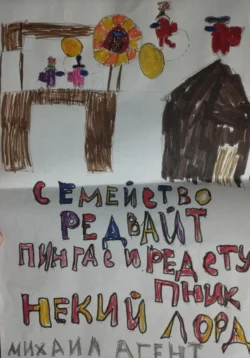 СЕМЕЙСТВО
РЕДВАЙТ
ПИНГАС И РЕДСТУ
ПНИК
НЕКИЙ ЛОРД
МИХАИЛ АГЕНТ